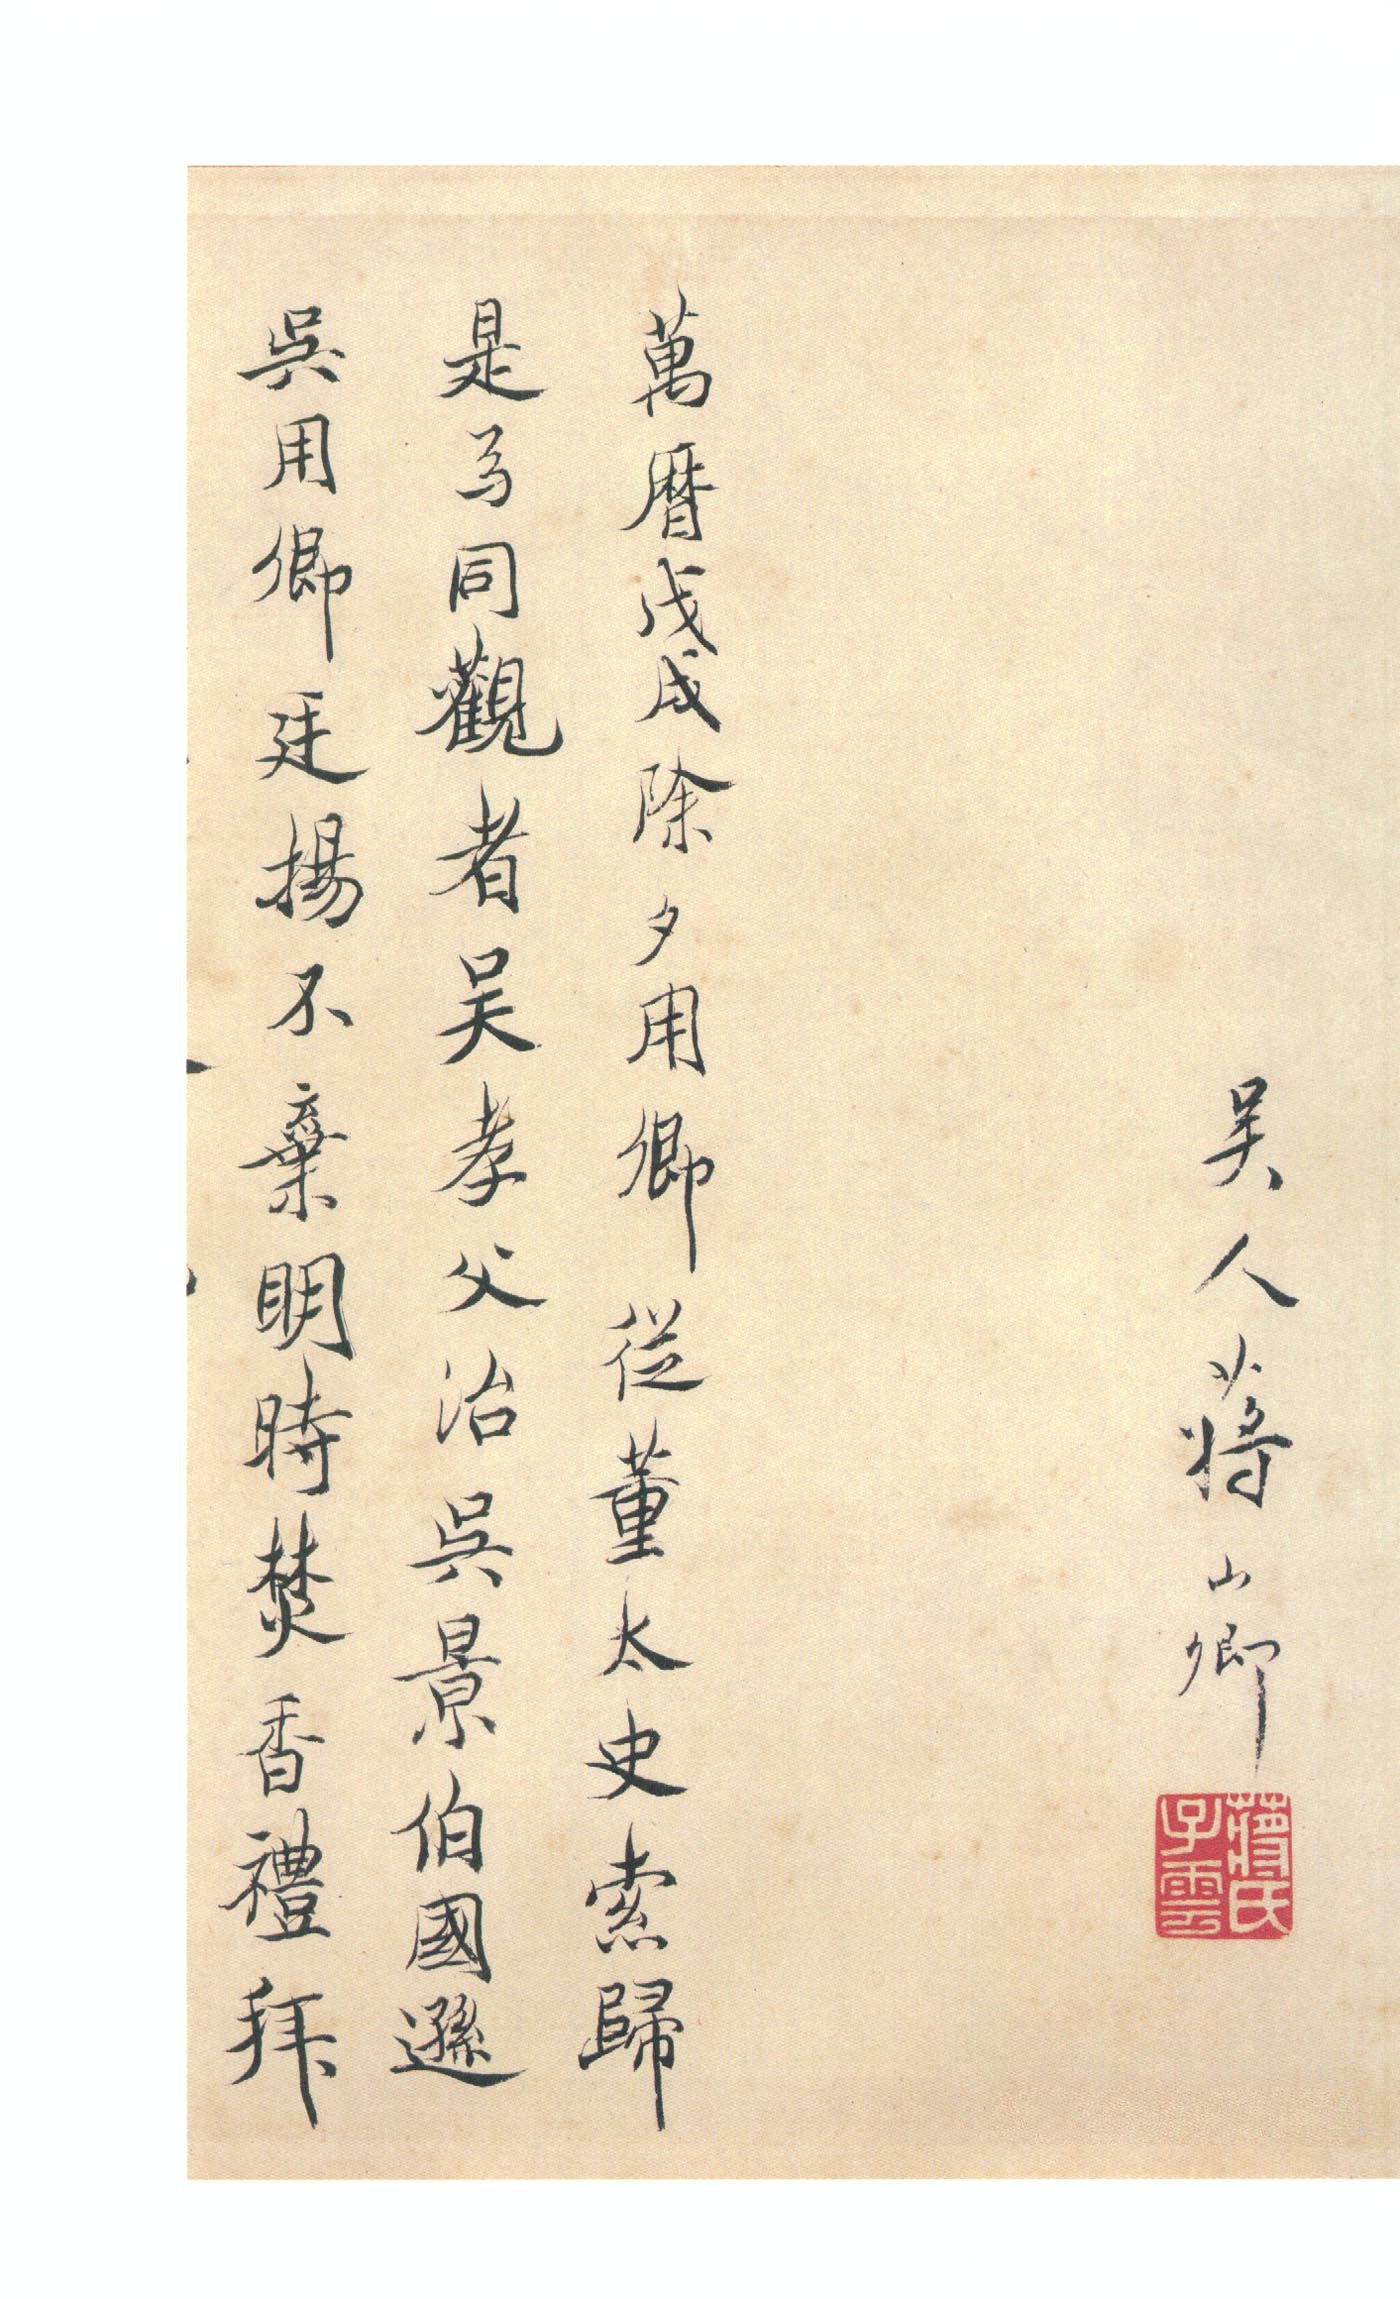 吳人蔣山卿
蔣氏
子雲
萬曆戊戌除夕用卿從董太史索歸
是日同觀者吳孝父治吳景伯國遜
吳用卿廷揚不棄明時焚香禮拜